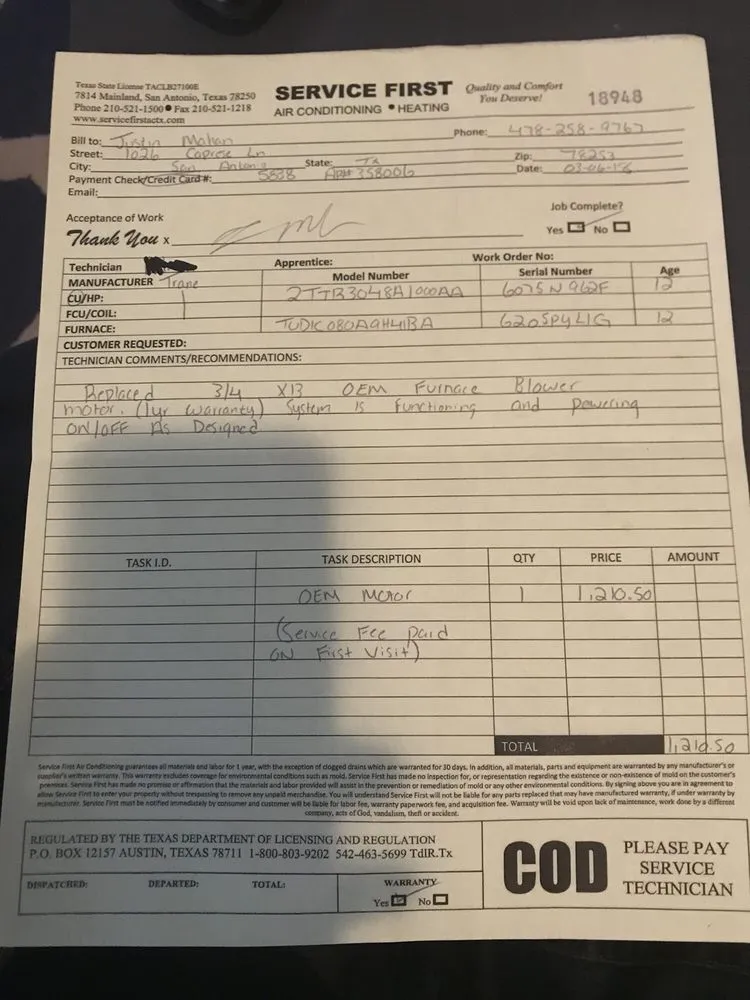 Texas State License TACLB27100E
7814 Mainland, San Antonio, Texas 78250
Phone 210-521-1500 ● Fax 210-521-1218
www.servicefirstactx.com
SERVICE FIRST
AIR CONDITIONING ● HEATING
Quality and Comfort
You Deserve!
18948
Bill to: Justin Mahan
Phone: 478-258-9767
Street: 1026 Caprese Ln
City: San Antonio State: TX Zip: 78253
Payment Check/Credit Card #: 5838 AP# 358006 Date: 03-06-16
Email:
Acceptance of Work
Thank You x
Job Complete?
Yes No
Technician Apprentice: Work Order No:
MANUFACTURER Trane Model Number Serial Number Age
CU/HP: 2TTB3048A1000AA 6075N962F 12
FCU/COIL:
FURNACE: TUD1C080A9H41BA 6205PYL1G 12
CUSTOMER REQUESTED:
TECHNICIAN COMMENTS/RECOMMENDATIONS:
Replaced 3/4 X13 OEM Furnace Blower
motor. (1yr warranty) System is functioning and powering
ON/OFF As Designed
TASK I.D. TASK DESCRIPTION QTY PRICE AMOUNT
OEM Motor 1 1,210.50
(Service Fee paid
ON First Visit)
TOTAL 1,210.50
Service First Air Conditioning guarantees all materials and labor for 1 year, with the exception of clogged drains which are warranted for 30 days. In addition, all materials, parts and equipment are warranted by any manufacturer's or
supplier's written warranty. This warranty excludes coverage for environmental conditions such as mold. Service First has made no inspection for, or representation regarding the existence or non-existence of mold on the customer's
premises. Service First has made no promise or affirmation that the materials and labor provided will assist in the prevention or remediation of mold or any other environmental conditions. By signing above you are in agreement to
allow Service First to enter your property without trespassing to remove any unpaid merchandise. You will understand Service First will not be liable for any parts replaced that may have manufactured warranty, if under warranty by
manufacturer. Service First must be notified immediately by consumer and customer will be liable for labor fee, warranty paperwork fee, and acquisition fee. Warranty will be void upon lack of maintenance, work done by a different
company, acts of God, vandalism, theft or accident.
REGULATED BY THE TEXAS DEPARTMENT OF LICENSING AND REGULATION
P.O. BOX 12157 AUSTIN, TEXAS 78711 1-800-803-9202 542-463-5699 TdlR.Tx
DISPATCHED: DEPARTED: TOTAL: WARRANTY
Yes No
COD
PLEASE PAY
SERVICE
TECHNICIAN